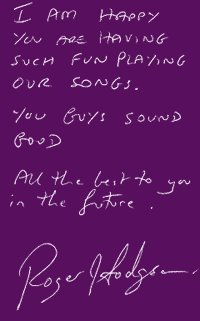 I AM HAPPY
YOU ARE HAVING
SUCH FUN PLAYING
OUR SONGS.
YOU GUYS SOUND
GOOD
All the best to you
in the future.
Roger Hodgson